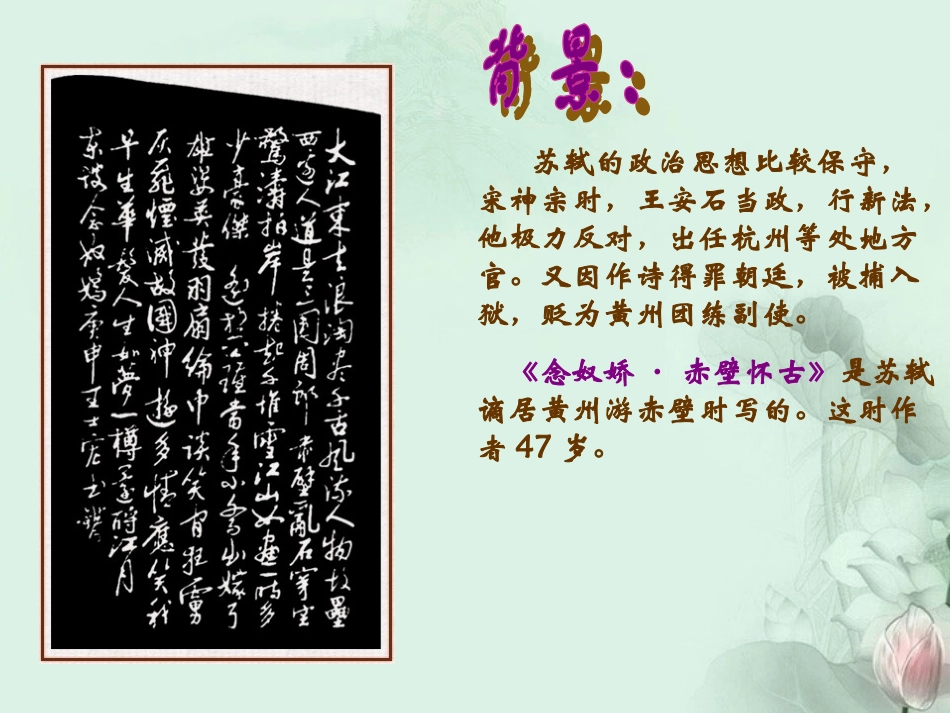 大江東去浪淘盡千古風流人物故壘
西邊人道是三國周郎赤壁亂石穿空
驚濤拍岸捲起千堆雪江山如畫一時多
少豪傑 遙想公瑾當年小喬初嫁了
雄姿英發羽扇綸巾談笑間狂虜
灰飛煙滅故國神遊多情應笑我
早生華髮人生如夢一樽還酹江月
東坡念奴嬌庚申
背景：
苏轼的政治思想比较保守，
宋神宗时，王安石当政，行新法，
他极力反对，出任杭州等处地方
官。又因作诗得罪朝廷，被捕入
狱，贬为黄州团练副使。
《念奴娇 · 赤壁怀古》是苏轼
谪居黄州游赤壁时写的。这时作
者 47 岁。